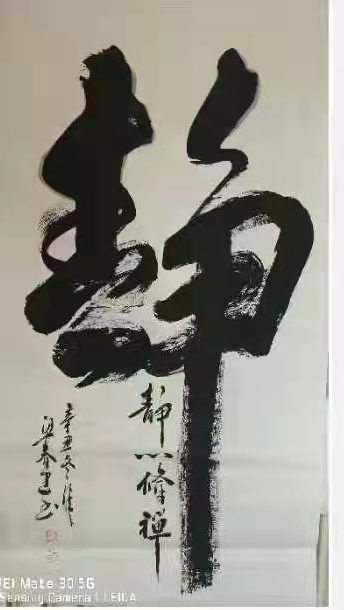 静
静心修禅
辛丑冬月
梁春建书
EI Mate 30 5G
Sensing Camera | LEICA